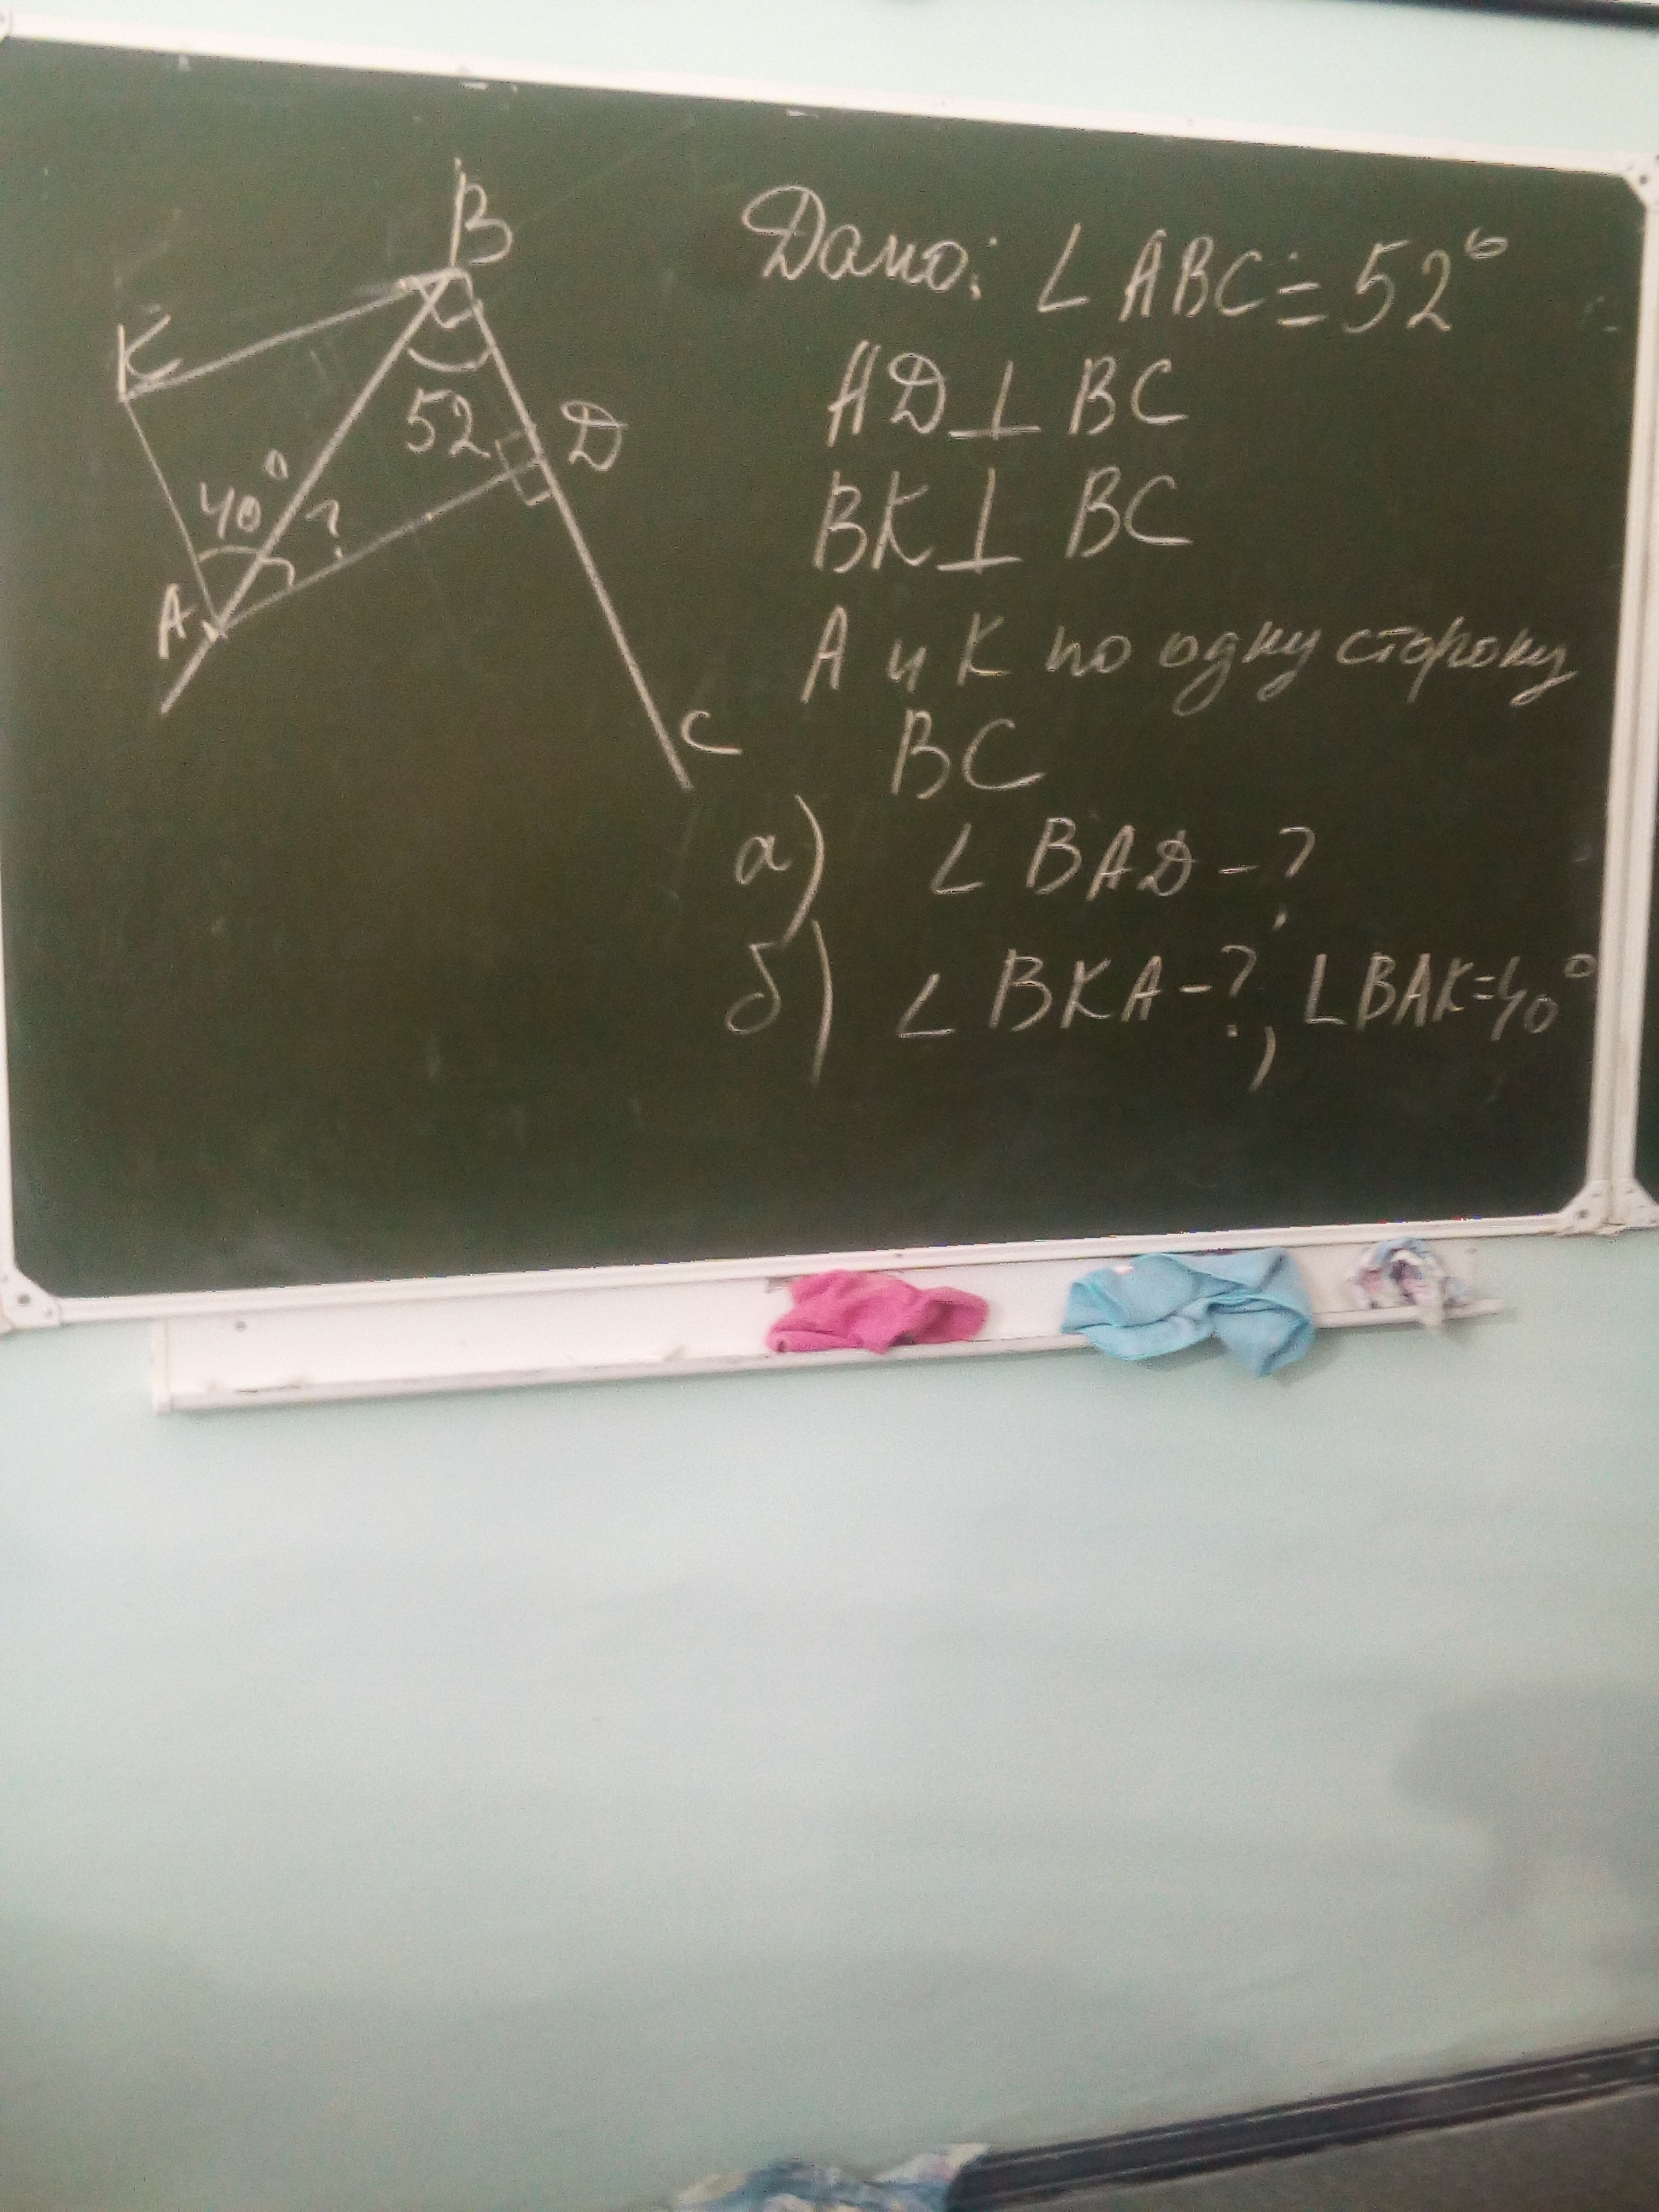 B
K
52
D
40°
?
A
C
Дано: ∠ ABC = 52°
AD ⊥ BC
BK ⊥ BC
A и K по одну сторону
BC
а) ∠ BAD - ?
б) ∠ BKA - ?, ∠BAK=40°